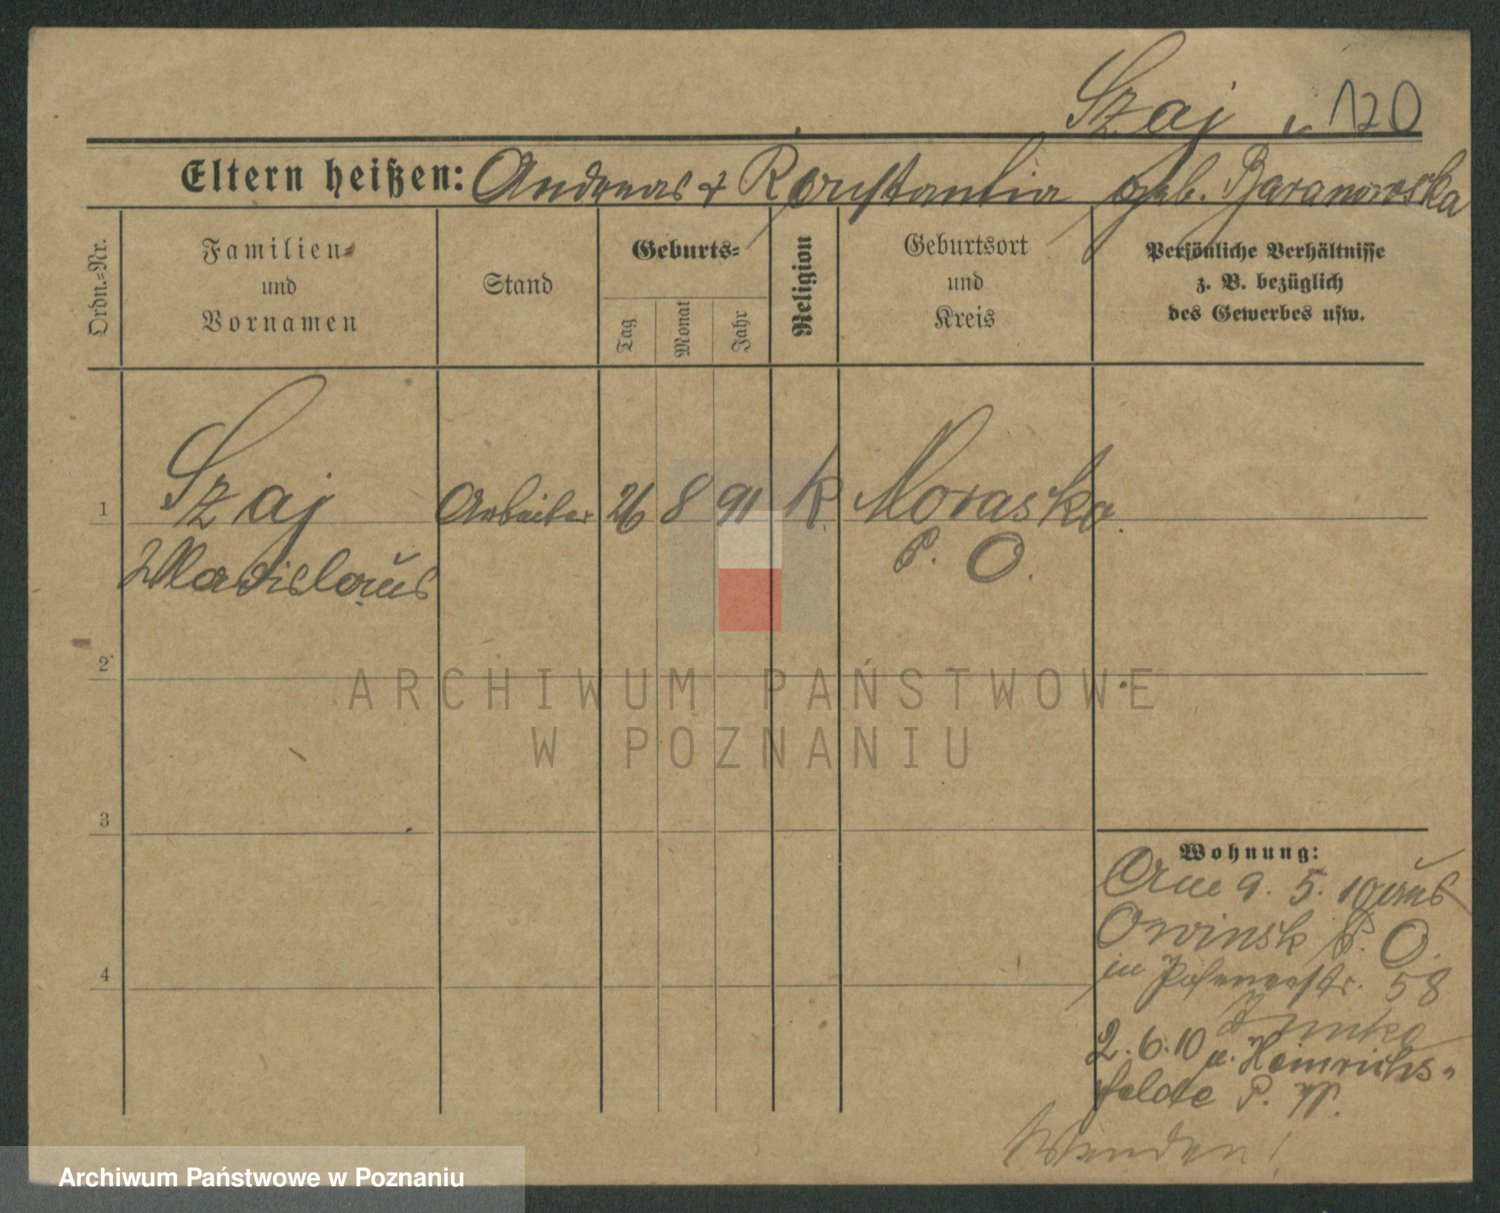 Szaj 120
Eltern heißen: Andreas & Konstantia geb. Baranowska
Ordn.-Nr.
Familien-
und
Vornamen
Stand
Geburts-
Tag
Monat
Jahr
Religion
Geburtsort
und
Kreis
Persönliche Verhältnisse
z. B. bezüglich
des Gewerbes usw.
1
Szaj Arbeiter 26 8 91 K. Morasko.
Wladislaus P. O.
2
ARCHIWUM PAŃSTWOWE
W POZNANIU
3
Wohnung:
Am 9. 5. 10 aus
Owinsk P. O.
in Posenerstr. 58
2.6.10 n. Heinrichs-
felde P. W.
4
Wenden!
Archiwum Państwowe w Poznaniu